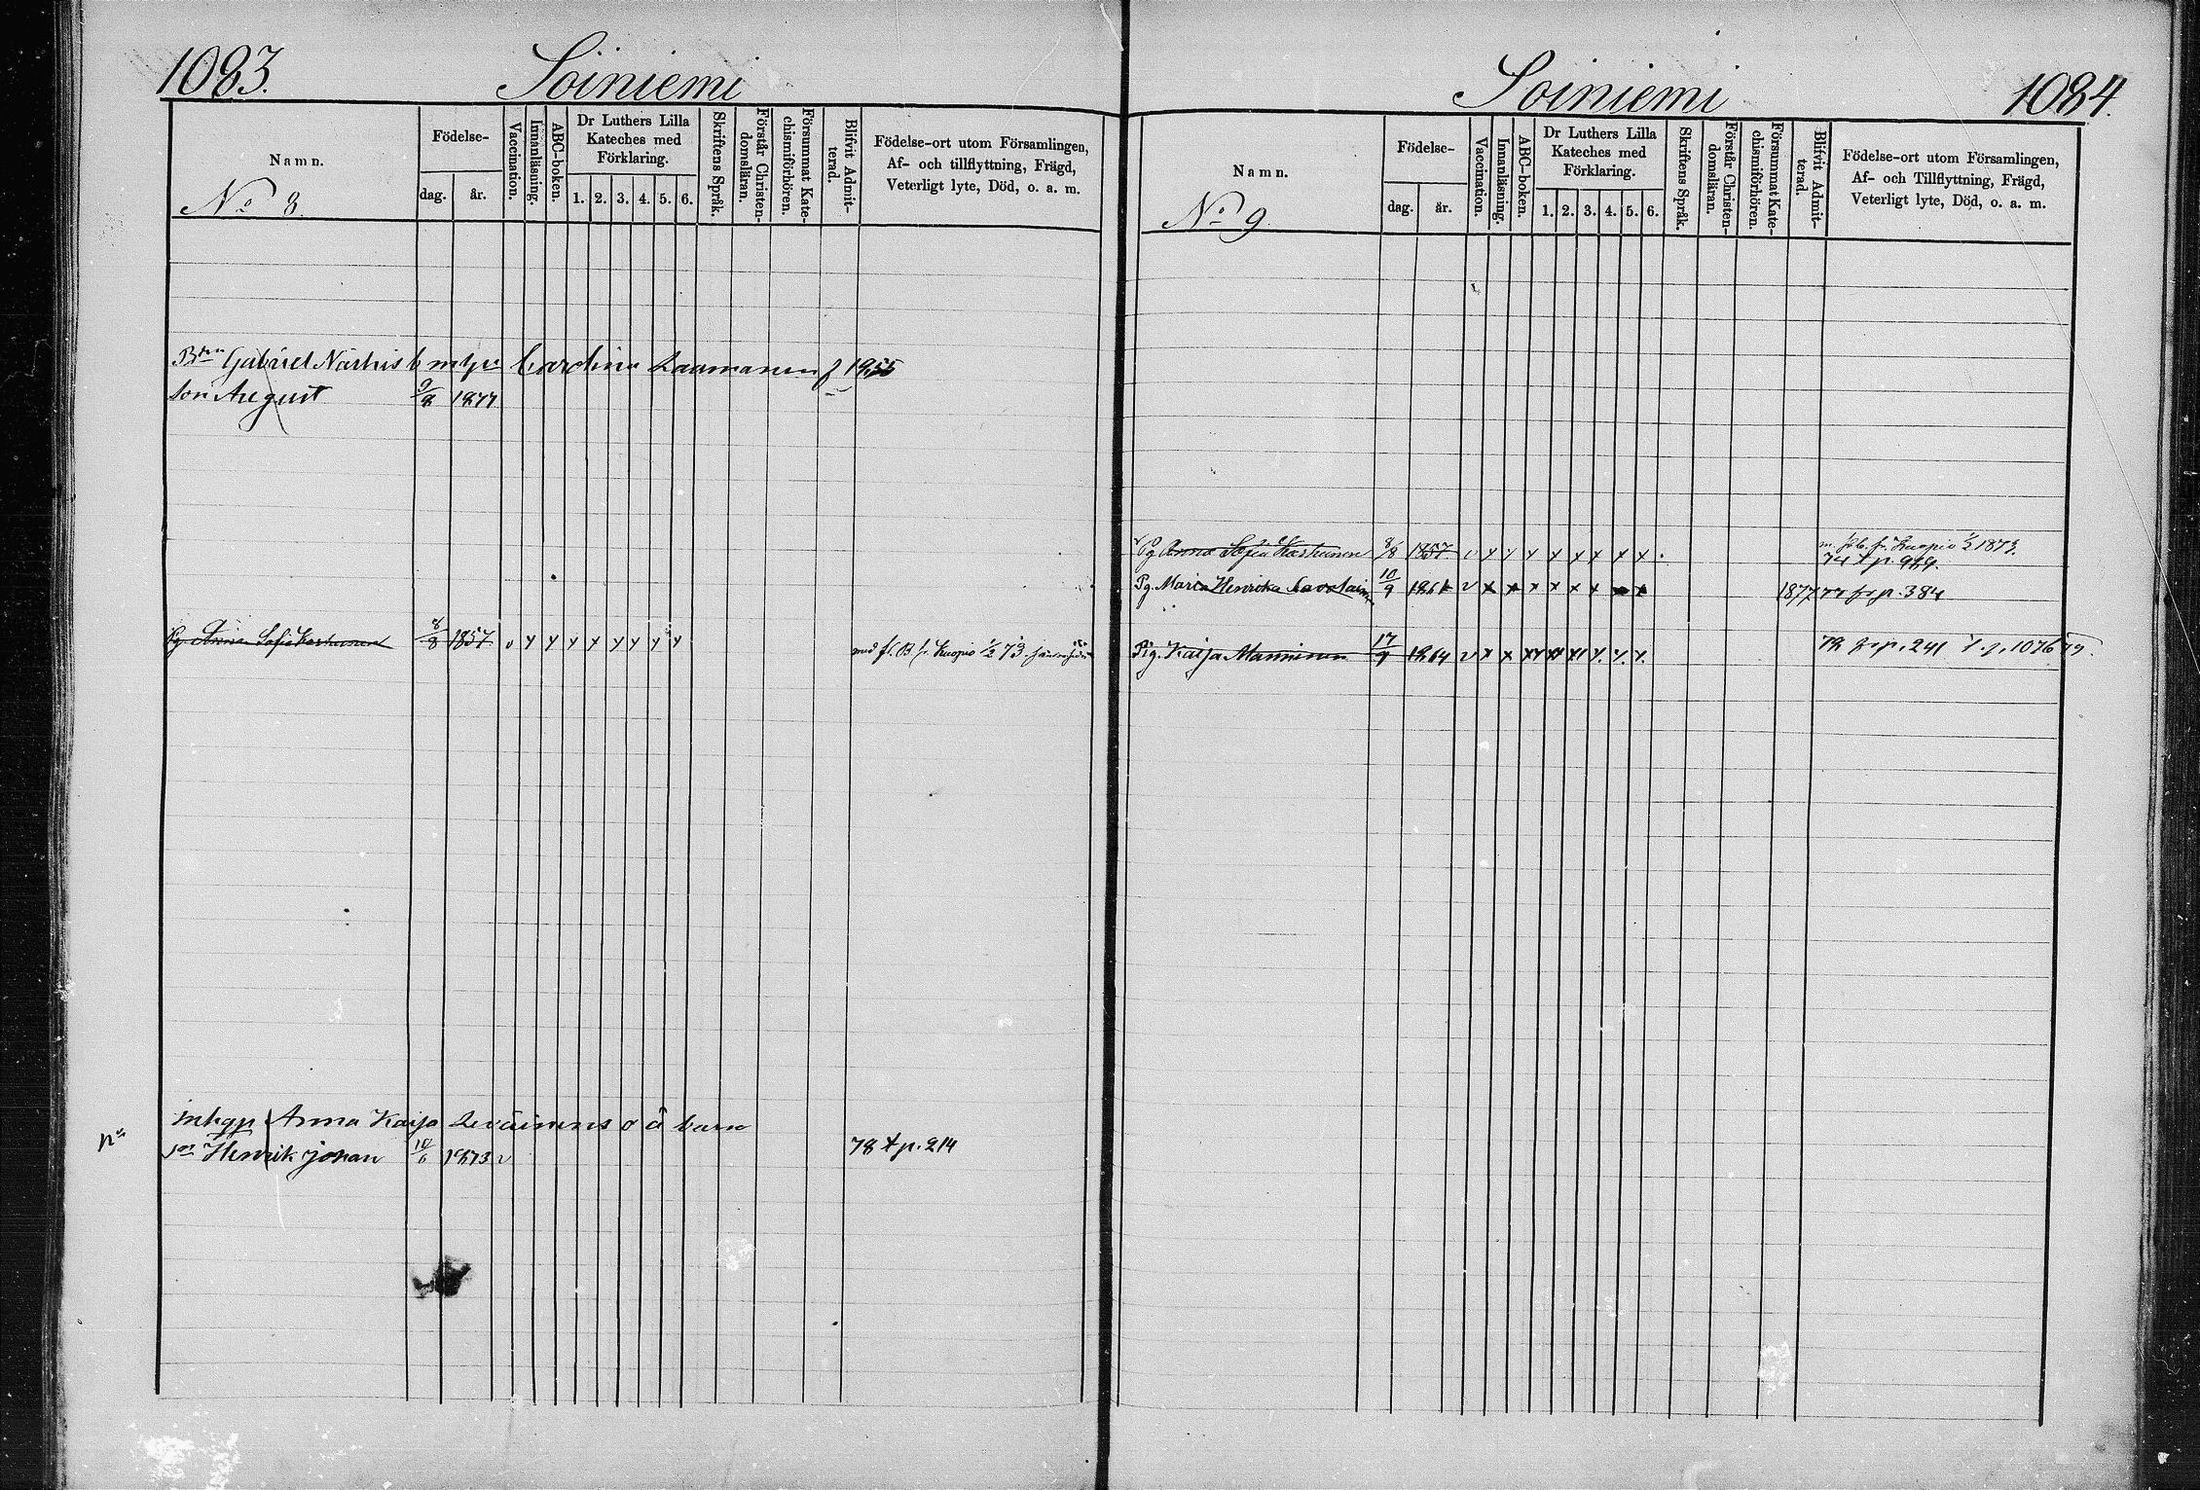 1083.
Soiniemi
Namn.
Födelse-
dag.
år.
Vaccination.
Innanläsning.
ABC-boken.
Dr Luthers Lilla
Kateches med
Förklaring.
1. 2. 3. 4. 5. 6.
Skriftens Språk.
Förstår Christen-
domsläran.
Försummat Kate-
chismiförhören.
Blifvit Admit-
terad.
Födelse-ort utom Församlingen,
Af- och tillflyttning, Frägd,
Veterligt lyte, Död, o. a. m.
No 8.
Gabriel Närhis Carolina Laamanen f 1855
son August 9/8 1877
Pg Anna Sofia Karhunen 8/8 1857 v y y y y y y y y Kuopio 1/2 73
Anna Kaija barn
son Henrik Johan 10/6 1873 v 78 t p. 214
Soiniemi
1084.
Namn.
Födelse-
dag.
år.
Vaccination.
Innanläsning.
ABC-boken.
Dr Luthers Lilla
Kateches med
Förklaring.
1. 2. 3. 4. 5. 6.
Skriftens Språk.
Förstår Christen-
domsläran.
Försummat Kate-
chismiförhören.
Blifvit Admit-
terad.
Födelse-ort utom Församlingen,
Af- och Tillflyttning, Frägd,
Veterligt lyte, Död, o. a. m.
No 9.
Pg Anna Sofia Karhunen 8/8 1857 v y y y x x x x x Kuopio 1/2 1873.
74 t p.
Pg. Maria Henrika 10/9 1861 v x x x x x x x x 1877 77 fr p. 384
Pig. Kaija Manninen 17/9 1864 v x x 78 fr p. 241 t. p. 1076 79.